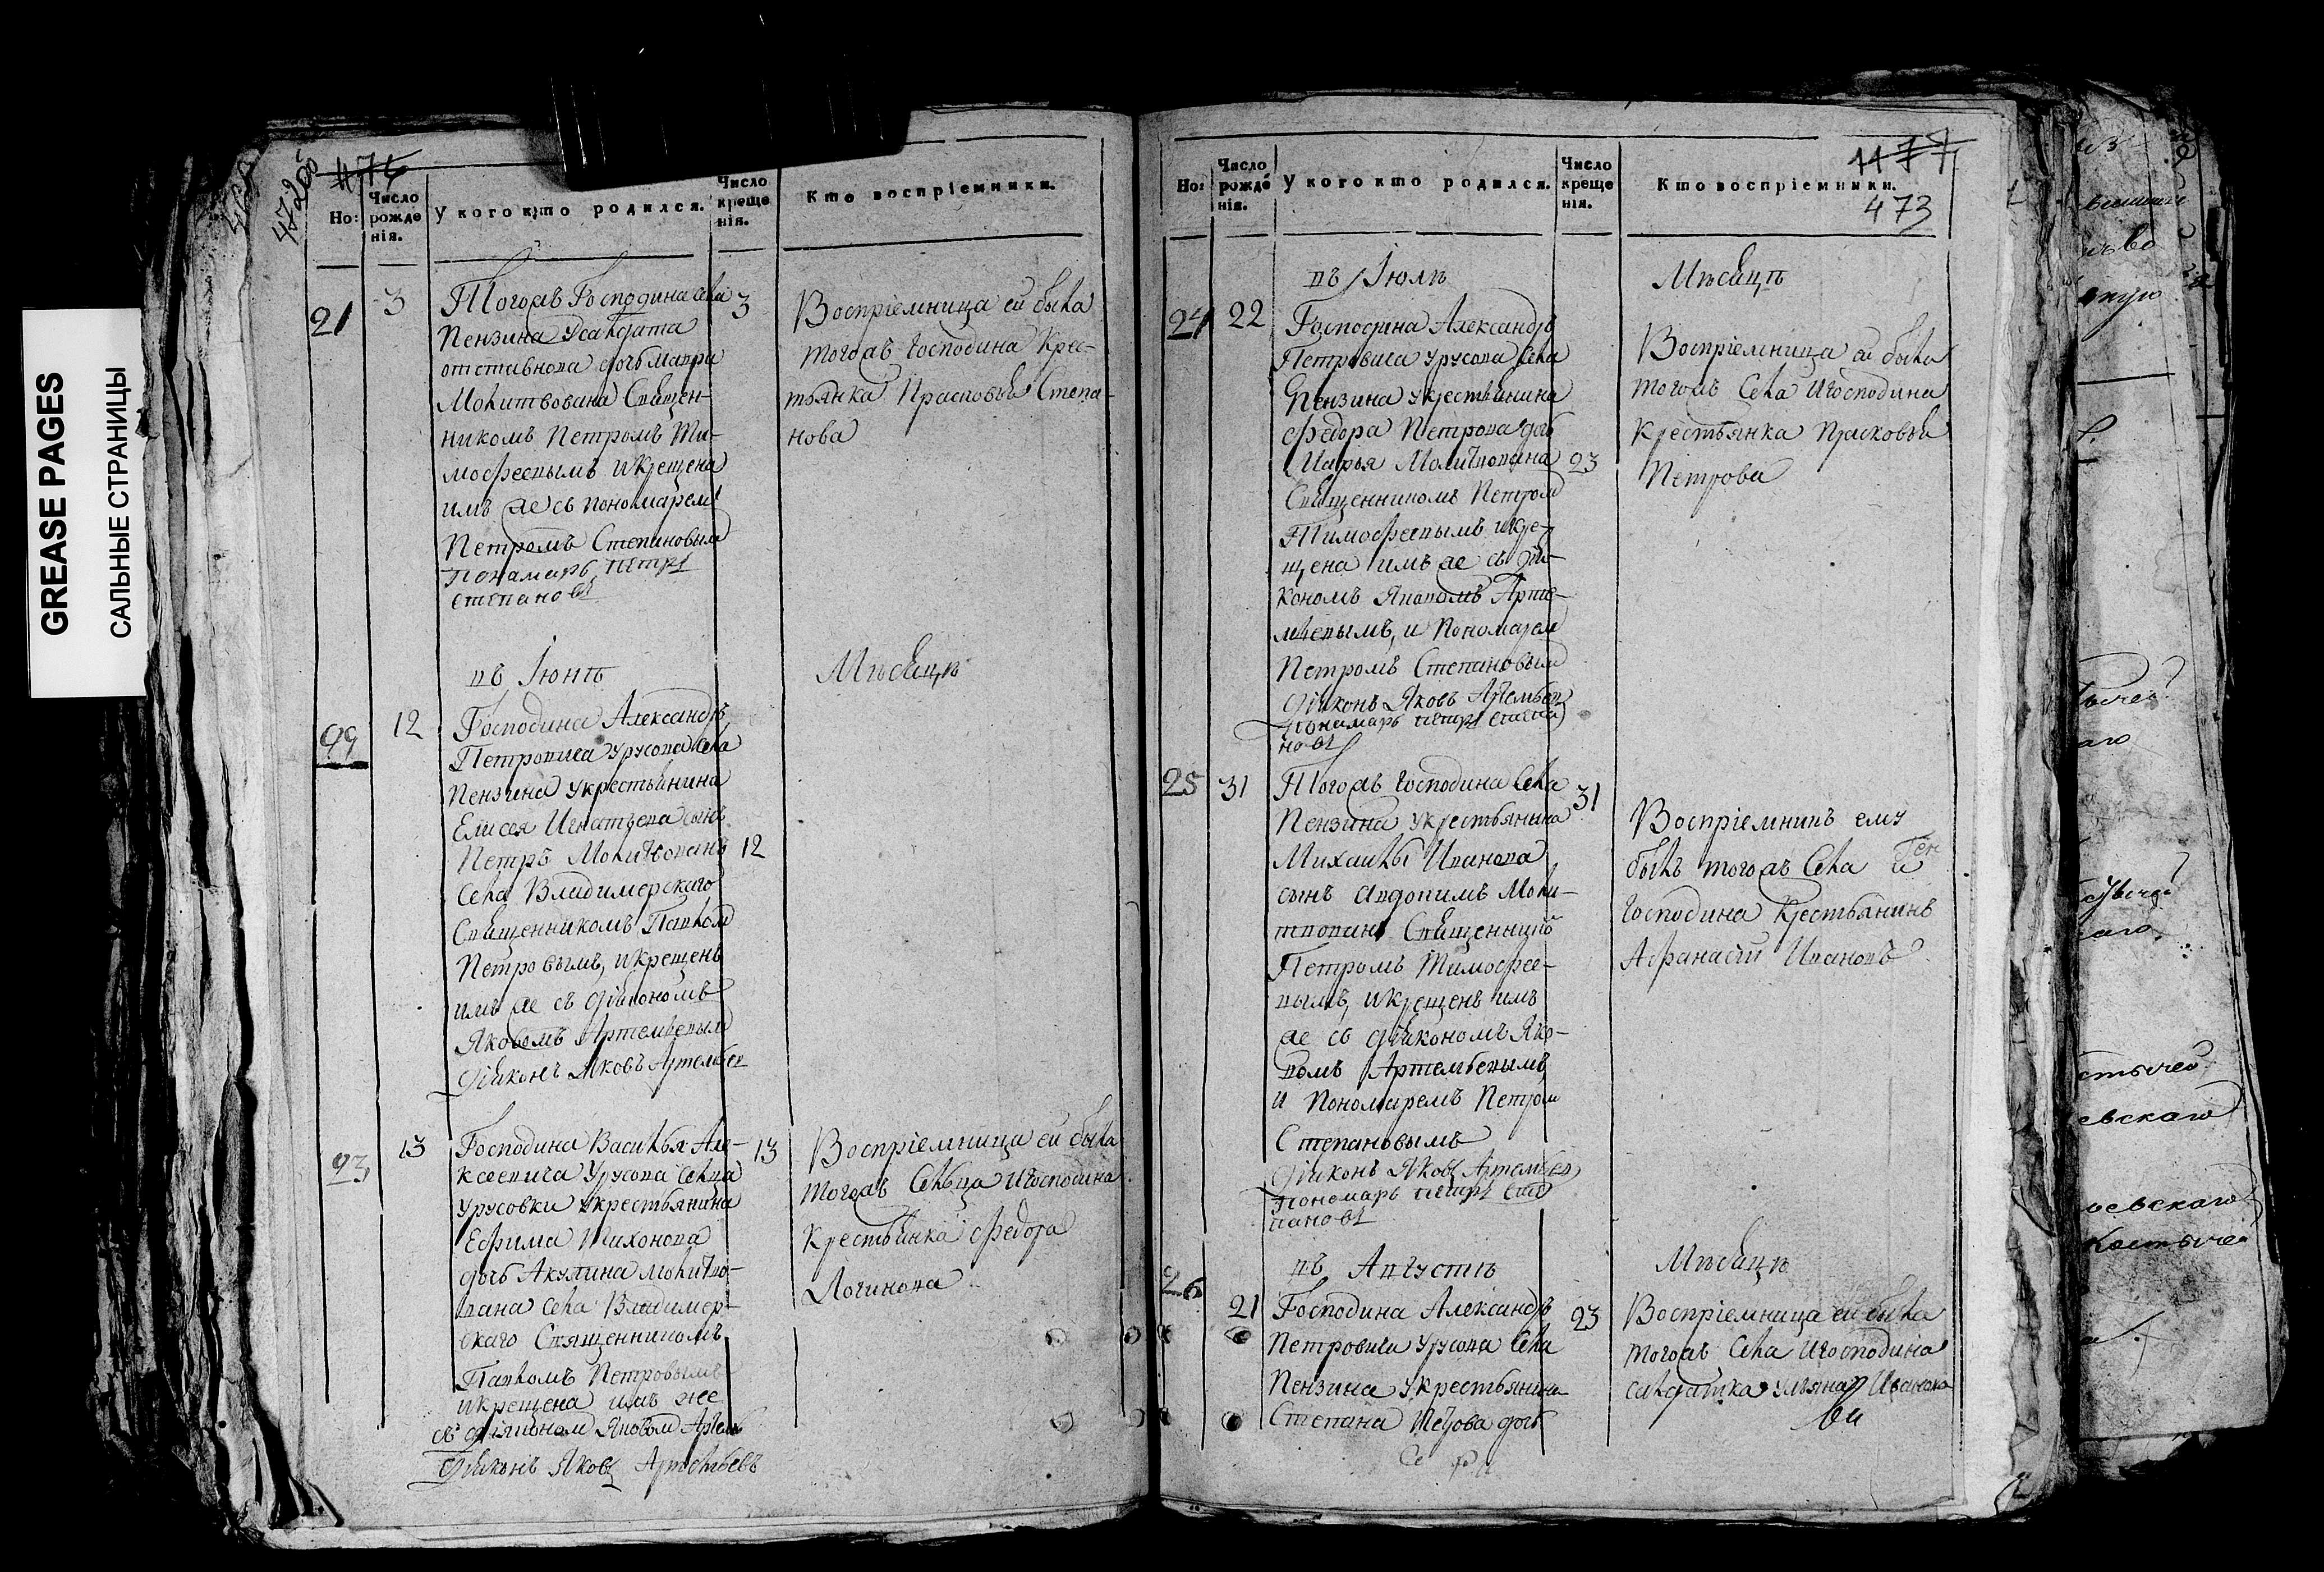 GREASE PAGES
САЛЬНЫЕ СТРАНИЦЫ
Но:
Число рожденія.
У кого кто родился.
Число крещенія.
Кто воспріемники.
21
3
Тогожъ Господина села
Пензина Усалдата
отставнова дочь Мавра
Молитвована Священ-
никомъ Петромъ Ти-
мофеевымъ икрещена
имъ же съ пономаремъ
Петромъ Степановым
Понамарь петръ
степановъ
3
Воспріемница ей была
тогожъ господина Крес-
тьянка Прасковья Степа-
нова
въ Іюнѣ
Мѣсяцѣ
22
12
Господина Александръ
Петровича Урусова села
Пензина укрестьянина
Елисея Игнатьева сынъ
Петръ Молитвованъ
села Владимерскаго
Священникомъ Павлом
Петровымъ, икрещенъ
имъ же съ діякономъ
Яковомъ Артемьевым
діяконъ Яковъ Артемьев
12
23
13
Господина Василья Але-
ксеевича Урусова сельца
Урусовки Укрестьянина
Ефима Тихонова
дочь Акулина молитво-
вана села Владимер-
скаго Священникомъ
Павломъ Петровымъ
икрещена имъ же
съ діякономъ Яковом Артем
діяконъ Яковъ Артемьевъ
13
Воспріемница ей была
тогожъ сельца Игосподина
крестьянка Федора
Логинова
1177
473
Но:
Число рожденія.
У кого кто родился.
Число крещенія.
Кто воспріемники.
въ Іюлѣ
Мѣсяцѣ
24
22
Господина Александръ
Петровича Урусова села
Пензина укрестьянина
Федора Петрова дочь
Марья Молитвована
Священникомъ Петром
Тимофеевымъ икре-
щена имъ же съ дія-
кономъ Яковомъ Арте-
мьевымъ, и Пономарем
Петромъ Степановым
діяконъ Яковъ Артемьев
пономарь петръ степа
новъ
23
Воспріемница ей была
тогожъ села Игосподина
Крестьянка Прасковья
Петрова
25
31
Тогожъ господина села
Пензина укрестьянина
Михаилы Иванова
сынъ Авдокимъ Моли-
твованъ Священникомъ
Петромъ Тимофее-
вымъ, икрещенъ имъ
же съ діякономъ Яко-
вомъ Артемьевымъ,
и Пономаремъ Петром
Степановымъ
діяконъ Яковъ Артемьев
пономарь петръ сте
пановъ
31
Воспріемникъ ему
былъ тогожъ села и
господина крестьянинъ
Афанасій Ивановъ
въ Августѣ
Мѣсяцѣ
26
21
Господина Александръ
Петровича Урусова села
Пензина Укрестьянина
Степана Титова дочь
23
Воспріемница ей была
тогожъ села Игосподина
салдатка Ульяна Иванова